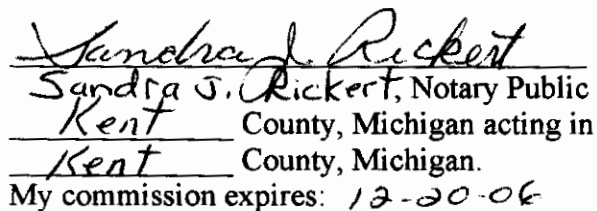 Sandra J. Rickert
Sandra J. Rickert, Notary Public
Kent County, Michigan acting in
Kent County, Michigan.
My commission expires: 12-20-06